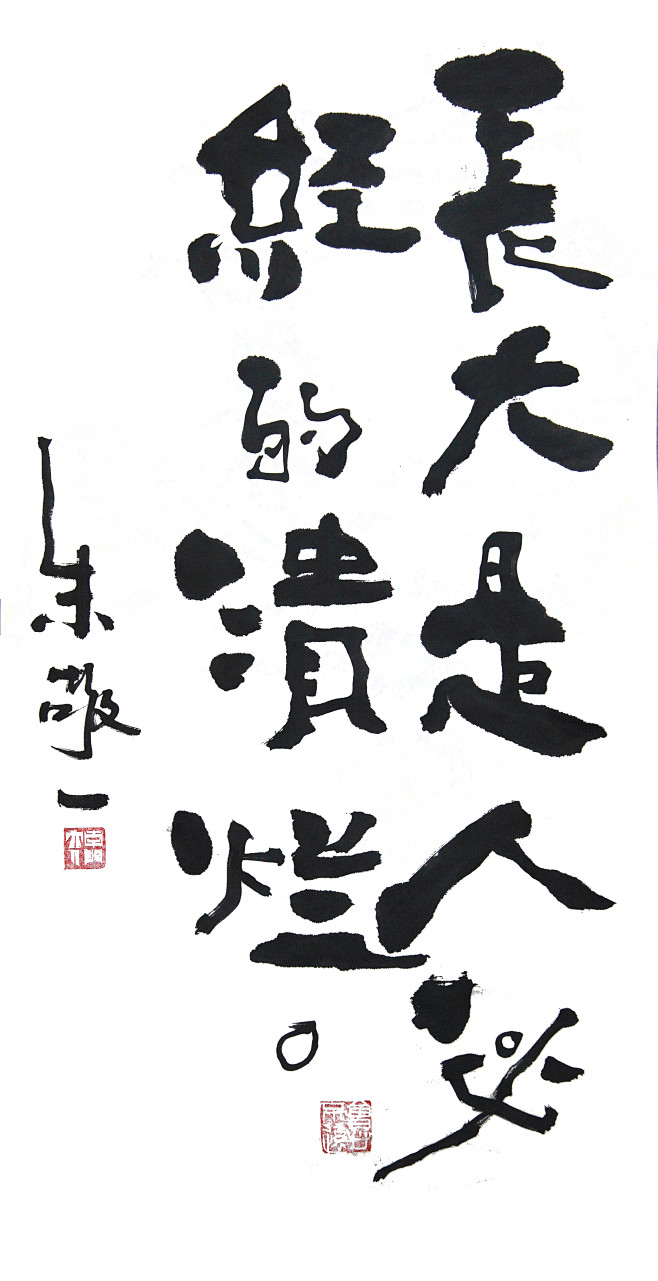 長大是人必
經的潰烂。
朱敬一